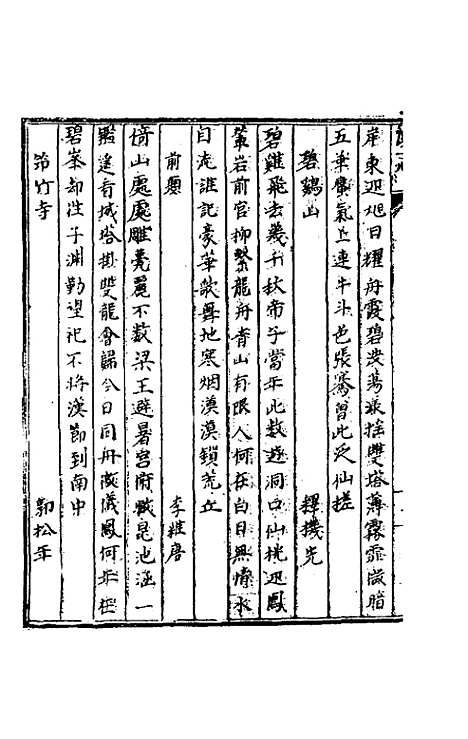 岸東迎旭日耀舟霞碧波蕩漾接雙塔薄霧霏微暗
五華氣上連牛斗邑張騫曾此泛仙槎
碧鷄山 釋機先
碧雞飛去幾千秋帝子當年此數遊洞口仙桃迎鳳
輦岩前官柳繫龍舟青山有限人何在白日無情水
自流誰記豪華歌舞地寒烟漠漠鎖荒丘
前題 李維唐
倚山處處雕甍麗不數梁王避暑宮俯瞰昆池涵一
鑑遙看城塔掛雙龍會歸今日同舟儀鳳何年
碧峯却性子淵勤望祀不將漢節到南中
筇竹寺 郭松年